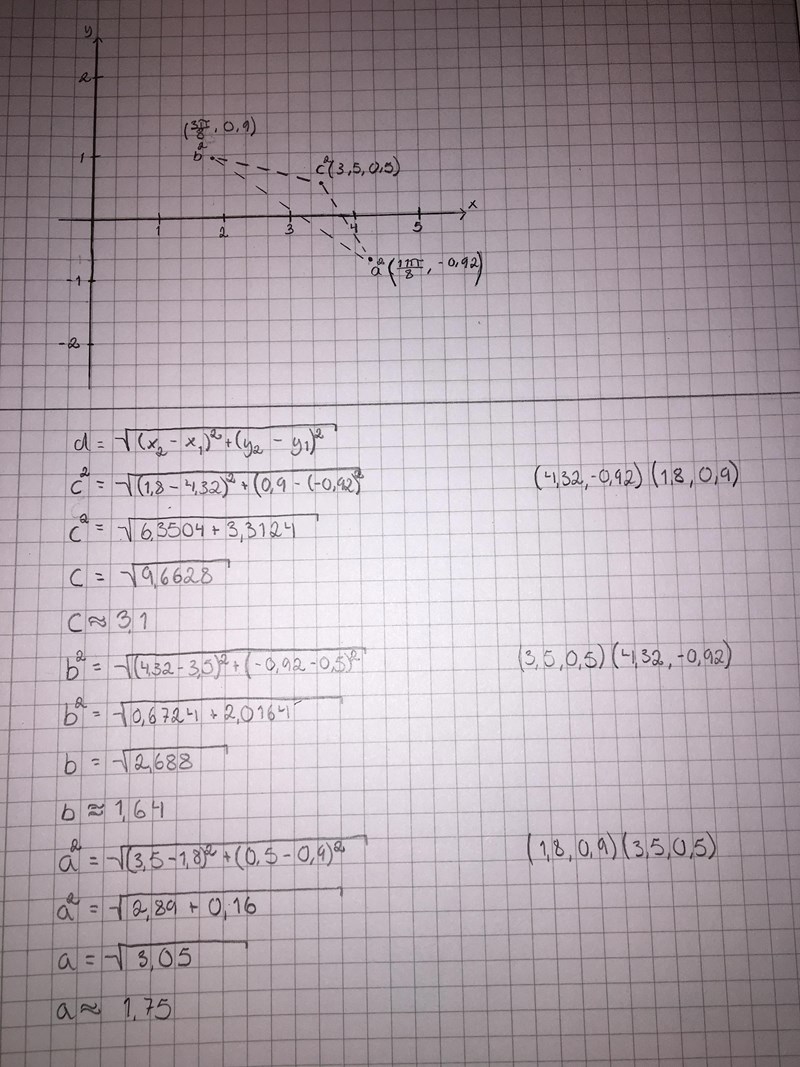 y
2
(3π/8, 0,9)
1
b²
c²(3,5, 0,5)
x
1 2 3 4 5
a² (11π/8, -0,92)
-1
-2
d = √(x₂ - x₁)² + (y₂ - y₁)²
c² = √(1,8 - 4,32)² + (0,9 - (-0,92)² (4,32, -0,92) (1,8, 0,9)
c² = √6,3504 + 3,3124
c = √9,6628
c ≈ 3,1
b² = √(4,32 - 3,5)² + (-0,92 - 0,5)² (3,5, 0,5) (4,32, -0,92)
b² = √0,6724 + 2,0164
b = √2,688
b ≈ 1,64
a² = √(3,5 - 1,8)² + (0,5 - 0,9)² (1,8, 0,9) (3,5, 0,5)
a² = √2,89 + 0,16
a = √3,05
a ≈ 1,75